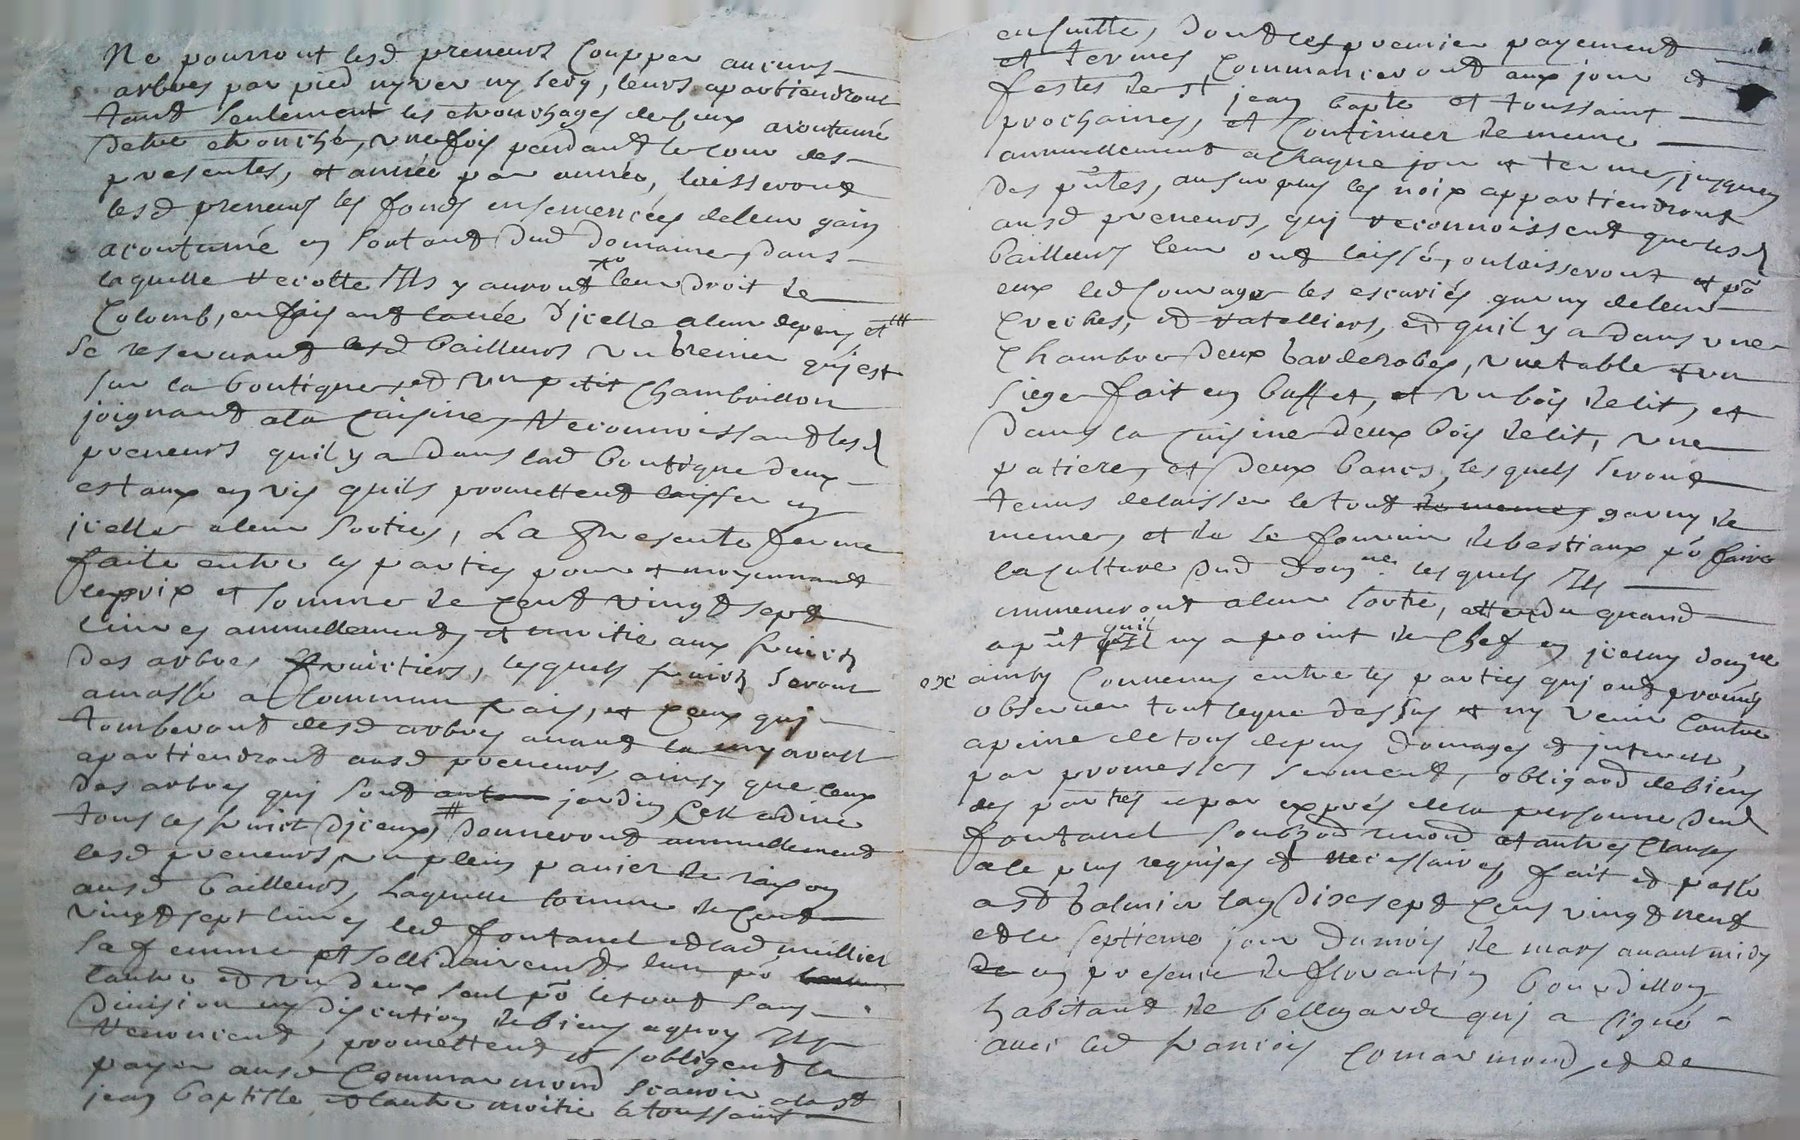 Ne pourront lesd preneurs Coupper aucuns
arbres par pied ny ver ny secq, leurs apartiendront
tant seulement les
detre une fois pendant le cour des
presentes, et année par année, laisseront
lesd preneurs les fonds ensemencées de leur gain
acoutumé en sortant dud Domaine, dans
laquelle recolte Ils y auront leur Droit de
Colomb, en faisant d'jcelle a leur depens et
se reservant lesd bailleurs un grenier quj est
sur la boutique, et un petit Chambrillon
joignant a la Cuisine, Reconnoissant lesd
preneurs quil y a dans lad boutique deux
estaux en vis quils promettent laisser en
jcelle a leur sorties, La Presente ferme
faite entre les parties pour et moyennant
le prix et somme de Cent vingt sept
Livres annuellement, et moitie aux fruits
des arbres fruictiers, lesquels fruits seront
amassé a Commun frais, et Ceux quj
tomberont desd arbres avant la
apartiendront ausd preneurs, ainsy que Ceux
des arbres quj sont jardin Cest adire
tous les fruict Djceux, Donneront annuellement
lesd preneurs un plein panier de raisin
ausd bailleurs, Laquelle somme de Cent
vingt sept Livres led fontanel et lad meillier
sa femme et sollidairement lun po
lautre et un deux seul po le tout sans
division ny discution de biens aquoy Ils
Renoncent, promettent et sobligent la
payer ausd Commarmond scavoir a la St
jean baptiste et lautre moitie a toussaint
ensuitte, dont les premier payement
et termes Commanceront aux jour et
festes de St jean bapte et toussaint
prochaines, et Continuer de meme
annuellement a Chaque jour et termes, jusques
des pntes, au surplus les noix appartiendront
ausd preneurs, quj reconnoissent que lesd
bailleurs leur ont laissé, ou laisseront et po
eux led les escuries garny de leur
Creches, et ratelliers, et quil y a dans une
Chambre deux garderobes, une table et un
siege fait en buffet, et un bois de lit, et
Dans la Cuisine deux bois de lit, une
patiere, et deux bancs, lesquels seront
tenus de laisser le tout de meme garny de
meme, et de se fournir de bestiaux po faire
la culture dud Domne lesquels Ils
emmeneront a leur sortie, attendu quand
apnt quil ny a point de Chef en jceluy Domne
ainsy Convenus entre les parties quj ont promis
observer tout ce que dessus et ny venir Contre
a peine de tous depens Domages et jnterest,
par promesses serment, obligaon de biens
des parties et par exprés de la personne dud
fontanel soubzon renon et autres Clauses
a le plus requises et necessaires, fait et passé
aud balmier Lan Dix sept Cent vingt neuf
et le septieme jour du mois de mars avant midy
en presence de florantin bourdillon
habitant de bellegarde quj a signé
avec led francois Comarmond, et de